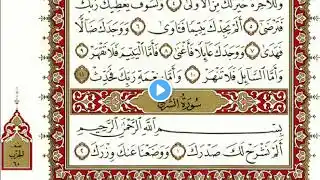 وَلَلْآخِرَةُ خَيْرٌ لَّكَ مِنَ الْأُولَىٰ ۝٤ وَلَسَوْفَ يُعْطِيكَ رَبُّكَ
فَتَرْضَىٰ ۝٥ أَلَمْ يَجِدْكَ يَتِيمًا فَآوَىٰ ۝٦ وَوَجَدَكَ ضَالًّا
فَهَدَىٰ ۝٧ وَوَجَدَكَ عَائِلًا فَأَغْنَىٰ ۝٨ فَأَمَّا الْيَتِيمَ فَلَا تَقْهَرْ ۝٩
وَأَمَّا السَّائِلَ فَلَا تَنْهَرْ ۝١٠ وَأَمَّا بِنِعْمَةِ رَبِّكَ فَحَدِّثْ ۝١١
سُورَةُ الشَّرْحِ
بِسْمِ اللَّهِ الرَّحْمَٰنِ الرَّحِيمِ
أَلَمْ نَشْرَحْ لَكَ صَدْرَكَ ۝١ وَوَضَعْنَا عَنكَ وِزْرَكَ ۝٢
الحزب
٦٠